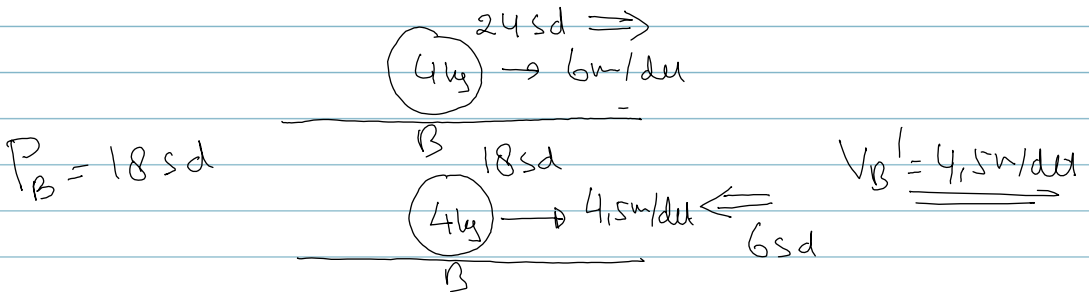 24 sd ⇒
4 kg → 6 m/det
B
P_B = 18 sd
18 sd
V_B' = 4,5 m/det
4 kg → 4,5 m/det ⇐
6 sd
B